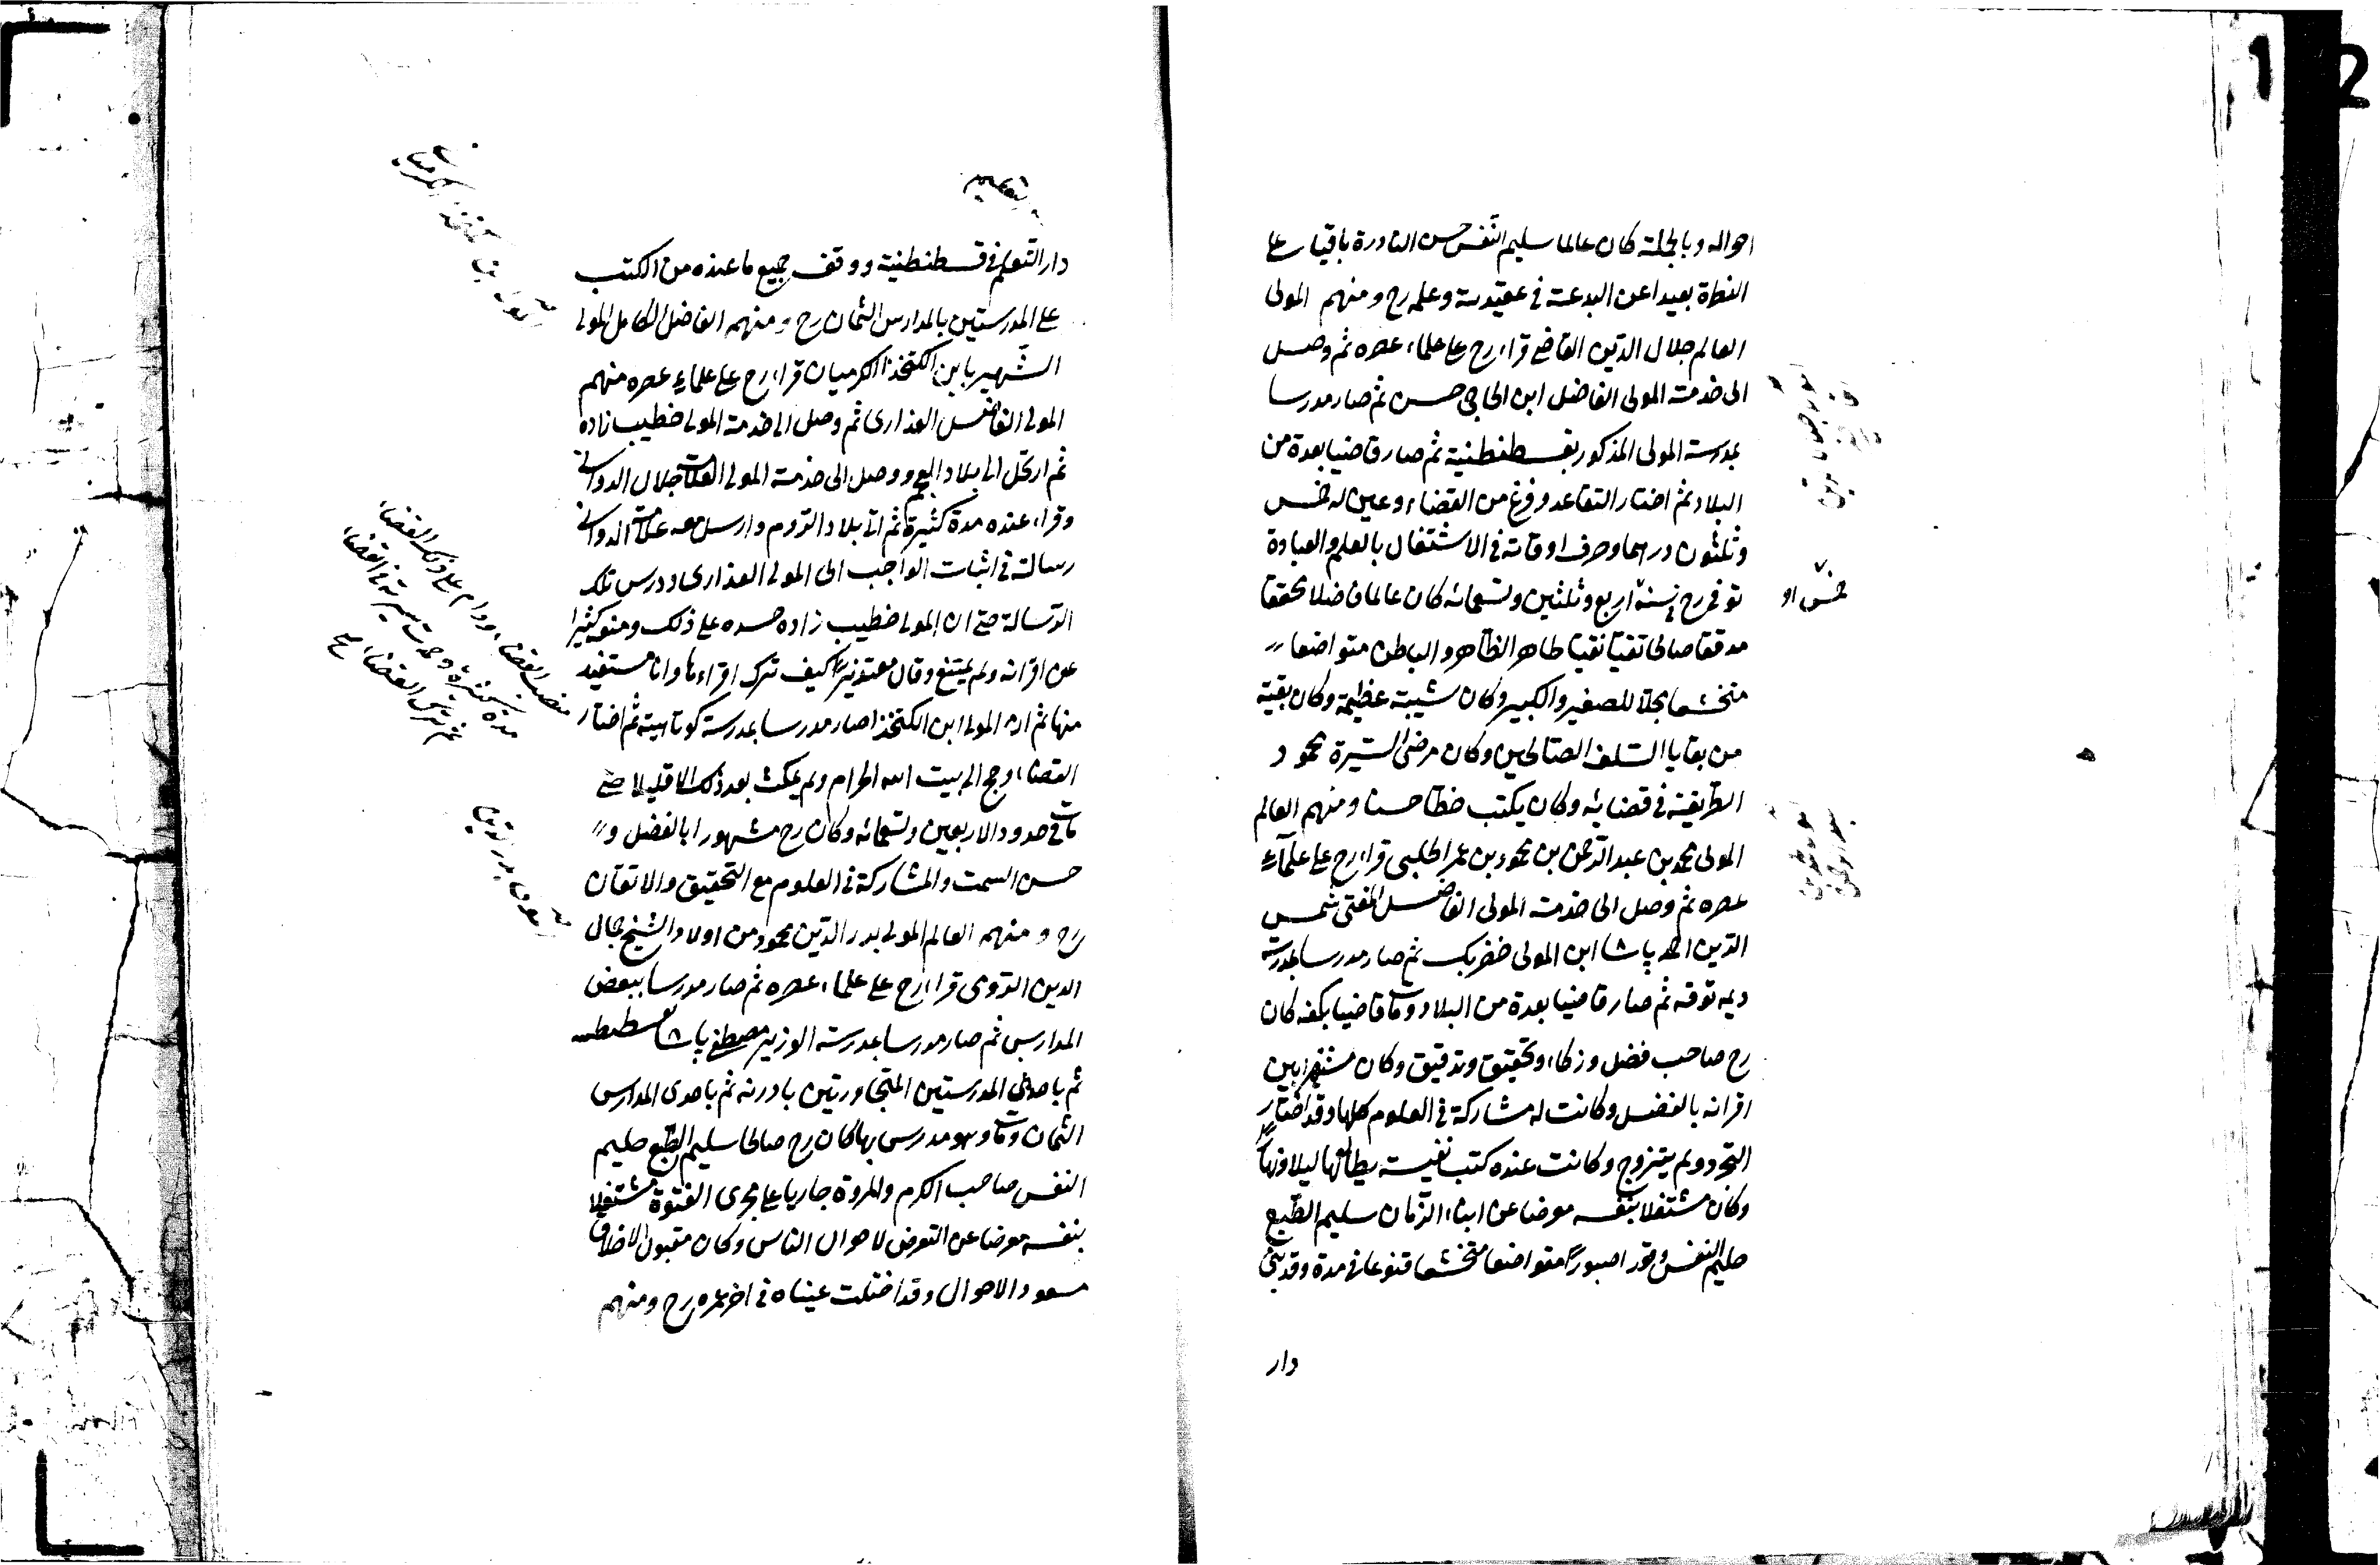 احواله وبالجملة كان عالما سليم النفس حسن النادرة باقيا على
الفطرة بعيدا عن البدعة في عقيدته وعلمه رح ومنهم المولى
العالم جلال الدين القاضي قراء رح على علماء عصره ثم وصل
الى خدمة المولى الفاضل ابن الحاجي حسن ثم صار مدرسا
بمدرسة المولى المذكور بقسطنطنية ثم صار قاضيا بعدة من
البلاد ثم اختار التقاعد وفرغ من القضاء وعين له خمس
وثلثون درهما وصرف اوقاته في الاشتغال بالعلم والعبادة
توفي رح في سنة اربع وثلثين وتسعمائه كان عالما فاضلا محققا
خمس او
مدققا صالحا تقيا نقيا طاهر الظاهر والباطن متواضعا
متخشعا مجلا للصغير والكبير وكان شيبته عظيمة وكان بقية
من بقايا السلف الصالحين وكان مرضى السيرة محمود
الطريقة في قضايه وكان يكتب خطا حسنا ومنهم العالم
المولى محمد بن عبد الرحمن بن محمود بن عمر الحلبى قراء رح على علماء
عصره ثم وصل الى خدمة المولى الفاضل المفتى شمس
الدين احمد پاشا ابن المولى خضر بك ثم صار مدرسا بمدرسة
ديمه توقه ثم صار قاضيا بعدة من البلاد ومات قاضيا بكفه كان
رح صاحب فضل وزكاء وتحقيق وتدقيق وكان مشتهرا بين
اقرانه بالفضل وكانت له مشاركة في العلوم كلها وقد اختار
التجرد ولم يتزوج وكانت عنده كتب نفيسة يطالعها ليلا ونهارا
وكان مشتغلا بنفسه معرضا عن ابناء الزمان سليم الطبع
حليم النفس وقورا صبورا متواضعا متخشعا قنوعا في مدة وقد بنى
دار
دار التعليم في قسطنطنية ووقف جميع ما عنده من الكتب
على المدرستين بالمدارس الثمان رح ومنهم الفاضل الكامل المولى
الشهير بابن الكتخذا الكرميان قراء رح على علماء عصره منهم
المولى الفاضل العذارى ثم وصل الى خدمة المولى خطيب زاده
ثم ارتحل الى بلاد العجم ووصل الى خدمة المولى العلامة جلال الدواني
وقراء عنده مدة كثيرة ثم اتى بلاد الروم وارسل معه علامة الدواني
رسالة في اثبات الواجب الى المولى العذارى ودرس تلك
الرسالة حتى ان المولى خطيب زاده حسده على ذلك ومنعه كثيرا
عن اقرائه ولم يمتنع وقال معتذرا كيف نترك اقراءها وانا مستفيد
منها ثم ان المولى ابن الكتخذا صار مدرسا بمدرسة كوتاهية ثم اختار
منصب القضاء وداوم على ذلك القضاء
مدة كثيرة وحمدت سيرته في القضاء
ثم ترك القضاء
القضاء وحج الى بيت الله الحرام ولم يمكث بعد ذلك الا قليلا حتى
مات في حدود الاربعين وتسعمائه وكان رح مشهورا بالفضل و
حسن السمت والمشاركة في العلوم مع التحقيق والاتقان
رح ومنهم العالم المولى بدر الدين محمود من اولاد الشيخ جمال
الدين الروى قراء رح على علماء عصره ثم صار مدرسا ببعض
المدارس ثم صار مدرسا بمدرسة الوزير مصطفى پاشا بقسطنطنيه
ثم باحدى المدرستين المتجاورتين بادرنه ثم باحدى المدارس
الثمان ومات وهو مدرس بها كان رح صالحا سليم الطبع حليم
النفس صاحب الكرم والمروة جاريا على مجرى الفتوة مشتغلا
بنفسه معرضا عن التعرض لاحوال الناس وكان مقبول الاخلاق
مسعود الاحوال وقد اختلت عيناه في اخر عمره رح ومنهم